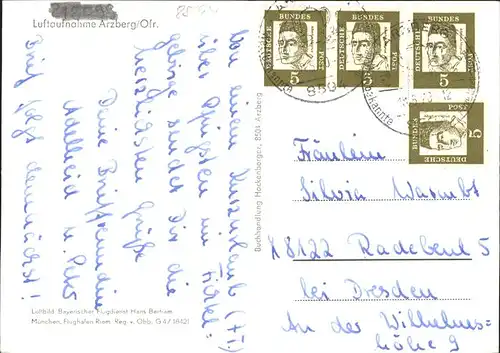 Luftaufnahme Arzberg/Ofr.
Von einem Kurzurlaub (7 T.)
über Pfingsten im Fichtel=
gebirge sendet Dir die
herzlichsten Grüße
Deine Brieffreundin
Adelheid u. Peter
Brief folgt demnächst!
Luftbild Bayerischer Flugdienst Hans Bertram
München, Flughafen Riem Reg. v. Obb. G 4 / 18421
Buchhandlung Hackenberger, 8594 Arzberg
DEUTSCHE BUNDES POST
5
DEUTSCHE BUNDES POST
5
DEUTSCHE BUNDES POST
5
DEUTSCHE BUNDES POST
5
8594
Fräulein
Silvia Warmbt
X 8122 Radebeul 5
bei Dresden
An der Wilhelms=
höhe 9